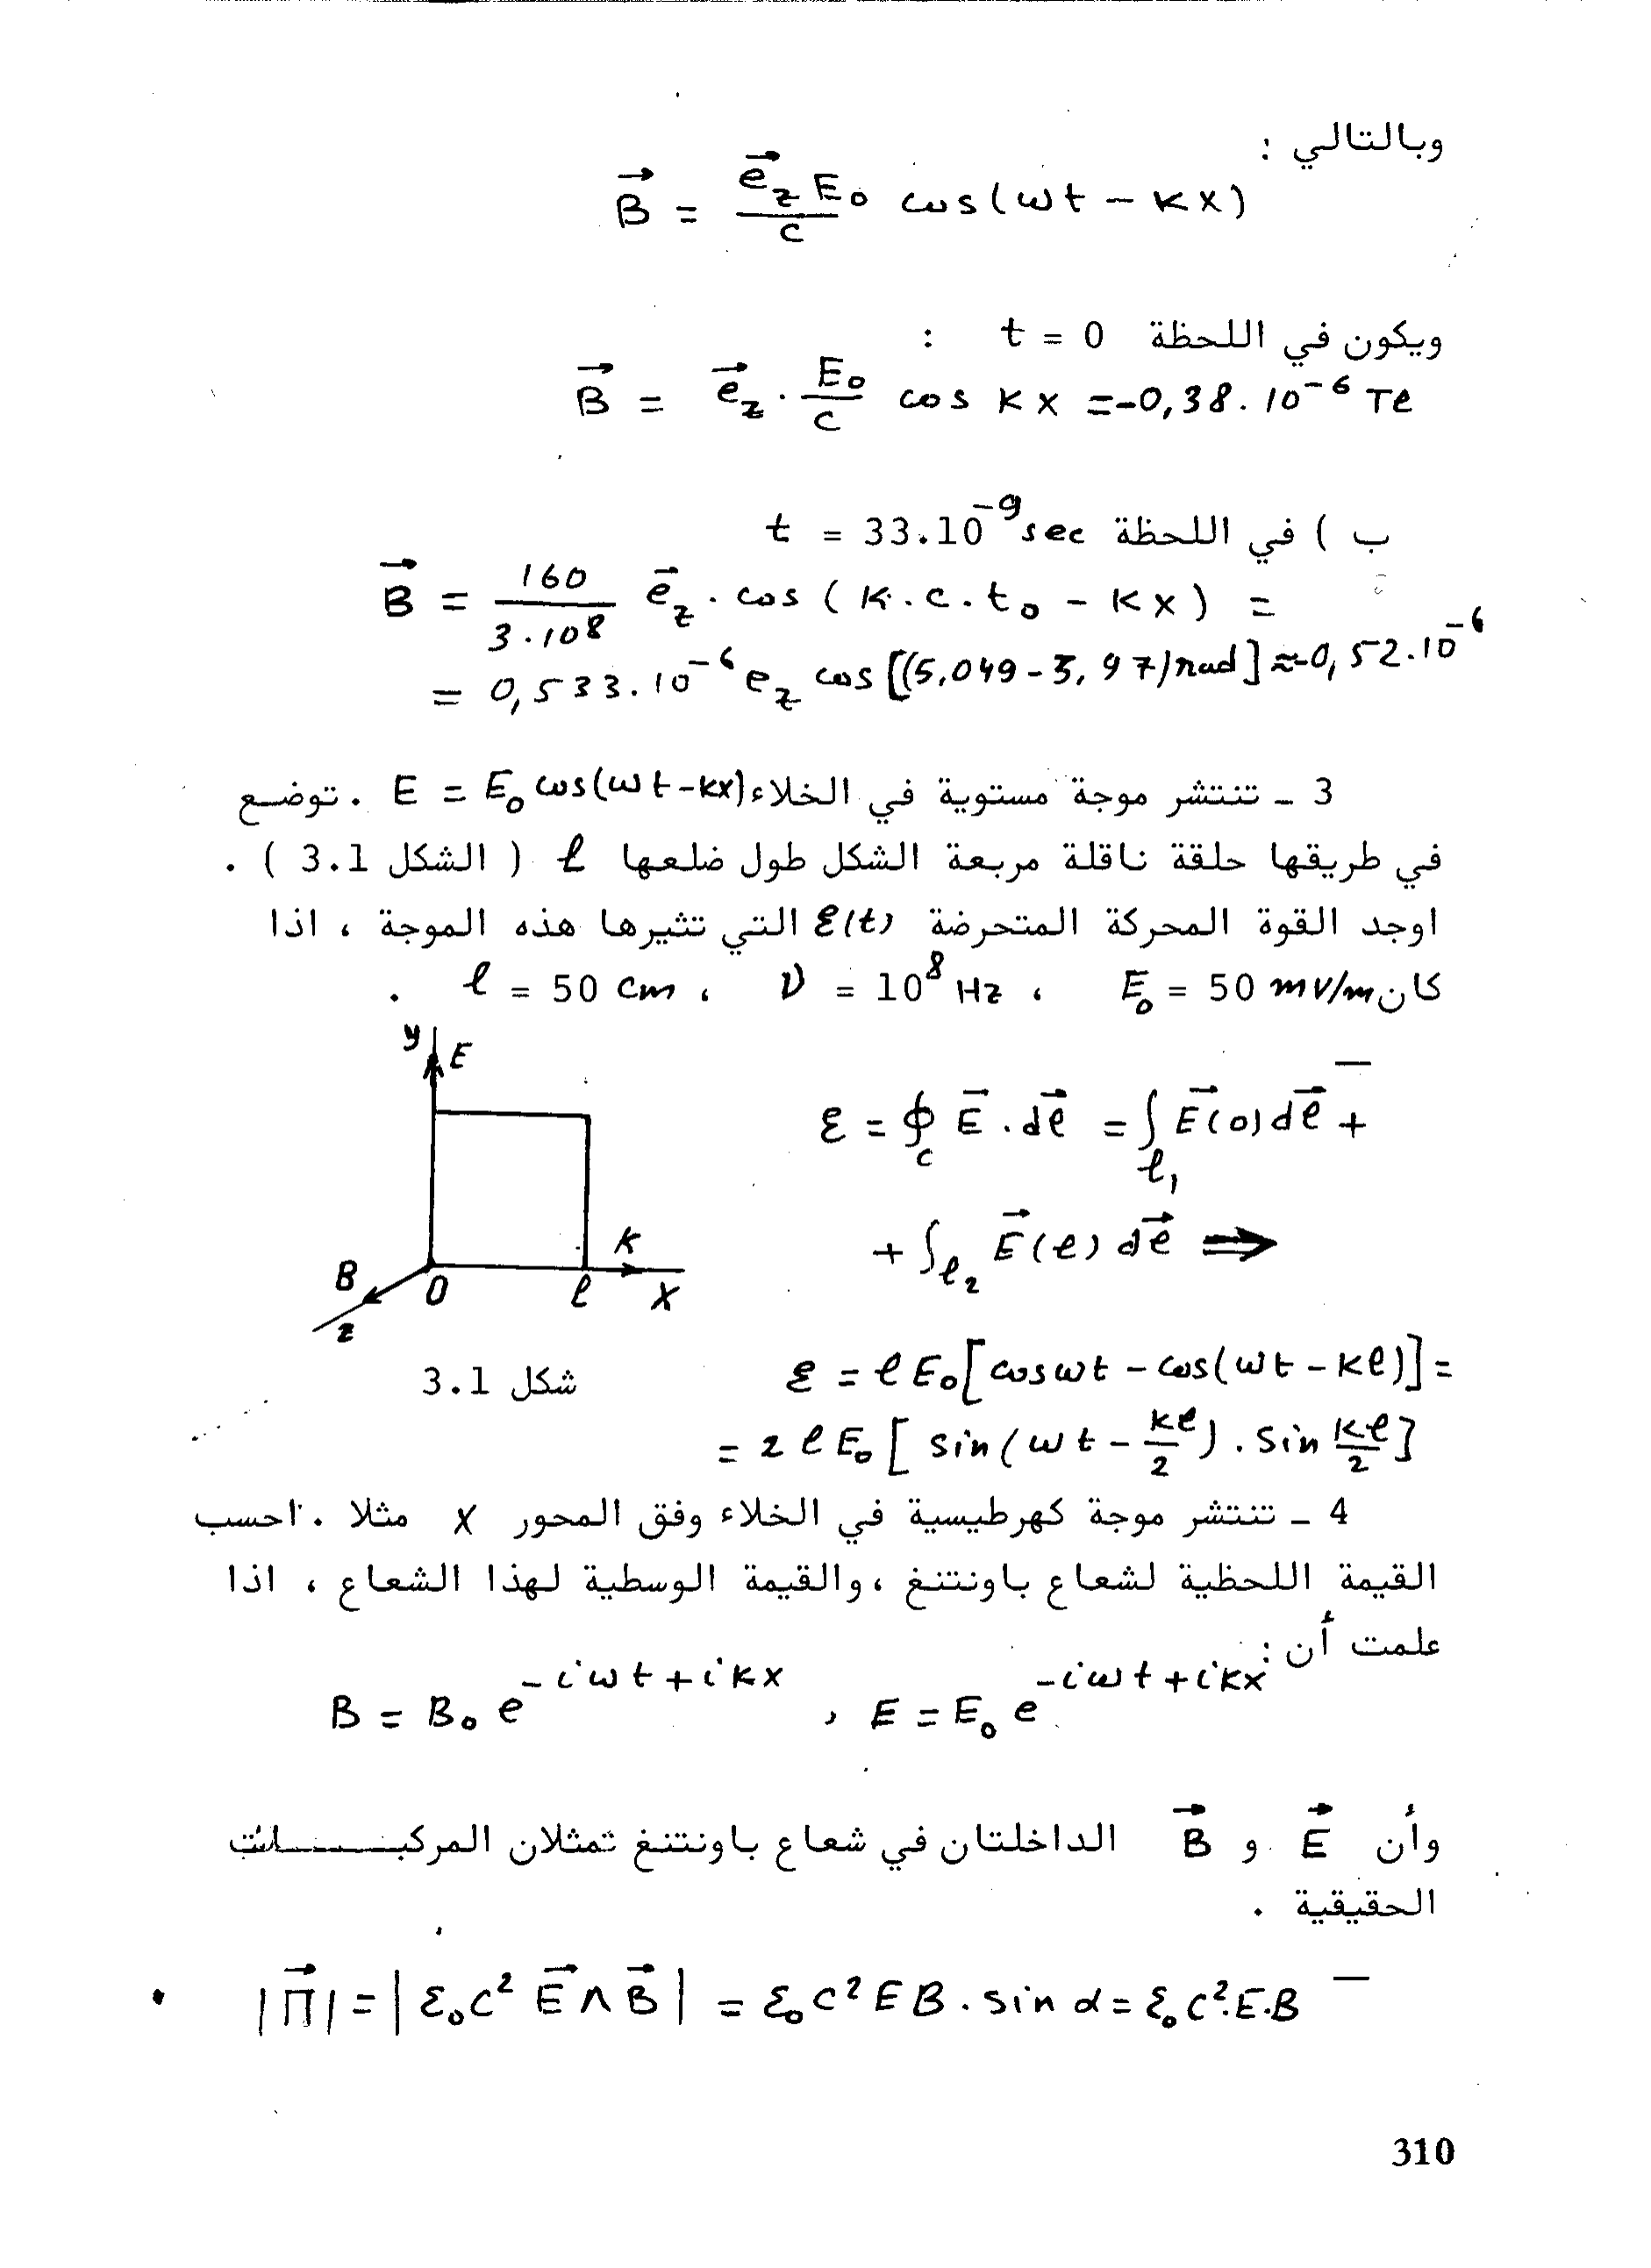 وبالتالي :
B⃗ = e⃗z E₀ / c cos(ωt - Kx)
ويكون في اللحظة t = 0 :
B⃗ = e⃗z · E₀/c cos Kx = -0,38.10⁻⁶ Te
ب ) في اللحظة t = 33.10⁻⁹ sec
B⃗ = 160 / 3.10⁸ e⃗z . cos ( K.c.t₀ - Kx ) =
= 0,533.10⁻⁶ ez cos [(5,049 - 3,97) rad] ≈ -0,52.10⁻⁶
3 ـ تنتشر موجة مستوية في الخلاء E = E₀ cos(ωt - kx) . توضع
في طريقها حلقة ناقلة مربعة الشكل طول ضلعها ℓ ( الشكل 3.1 ) .
اوجد القوة المحركة المتحرضة ℰ(t) التي تثيرها هذه الموجة ، اذا
كان E₀ = 50 mv/m ، ν = 10⁸ Hz ، ℓ = 50 cm .
y E
B z O ℓ K X
شكل 3.1
– ℰ = ∮c E⃗ . dℓ⃗ = ∫ℓ₁ E⃗(0) dℓ⃗ +
+ ∫ℓ₂ E⃗(ℓ) dℓ⃗ ⟹
ℰ = ℓ E₀ [cos ωt - cos(ωt - kℓ)] =
= 2 ℓ E₀ [ sin(ωt - kℓ/2) . sin kℓ/2 ]
4 ـ تنتشر موجة كهرطيسية في الخلاء وفق المحور X مثلا . احسب
القيمة اللحظية لشعاع باونتنغ ، والقيمة الوسطية لهذا الشعاع ، اذا
علمت أن :
E = E₀ e^(-iωt+ikx) ، B = B₀ e^(-iωt+ikx)
وأن E⃗ و B⃗ الداخلتان في شعاع باونتنغ تمثلان المركبــــات
الحقيقية .
– |Π⃗| = | ε₀c² E⃗ ∧ B⃗ | = ε₀c² E B . sin α = ε₀c².E.B .
310